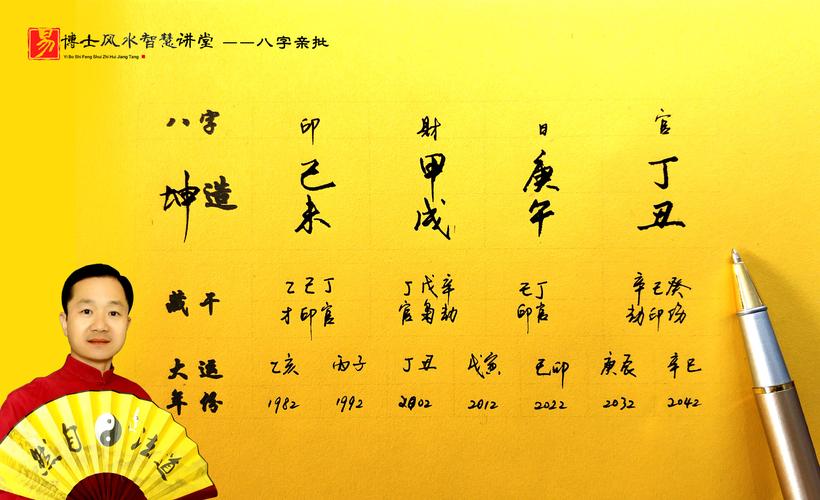 易 博士风水智慧讲堂 ——八字亲批
Yi Bo Shi Feng Shui Zhi Hui Jiang Tang
八字 印 財 日 官
坤造 己 甲 庚 丁
未 戌 午 丑
藏干 乙己丁 丁戊辛 己丁 辛己癸
才印官 官枭劫 印官 劫印伤
大运 乙亥 丙子 丁丑 戊寅 己卯 庚辰 辛巳
年份 1982 1992 2002 2012 2022 2032 2042
然自法道